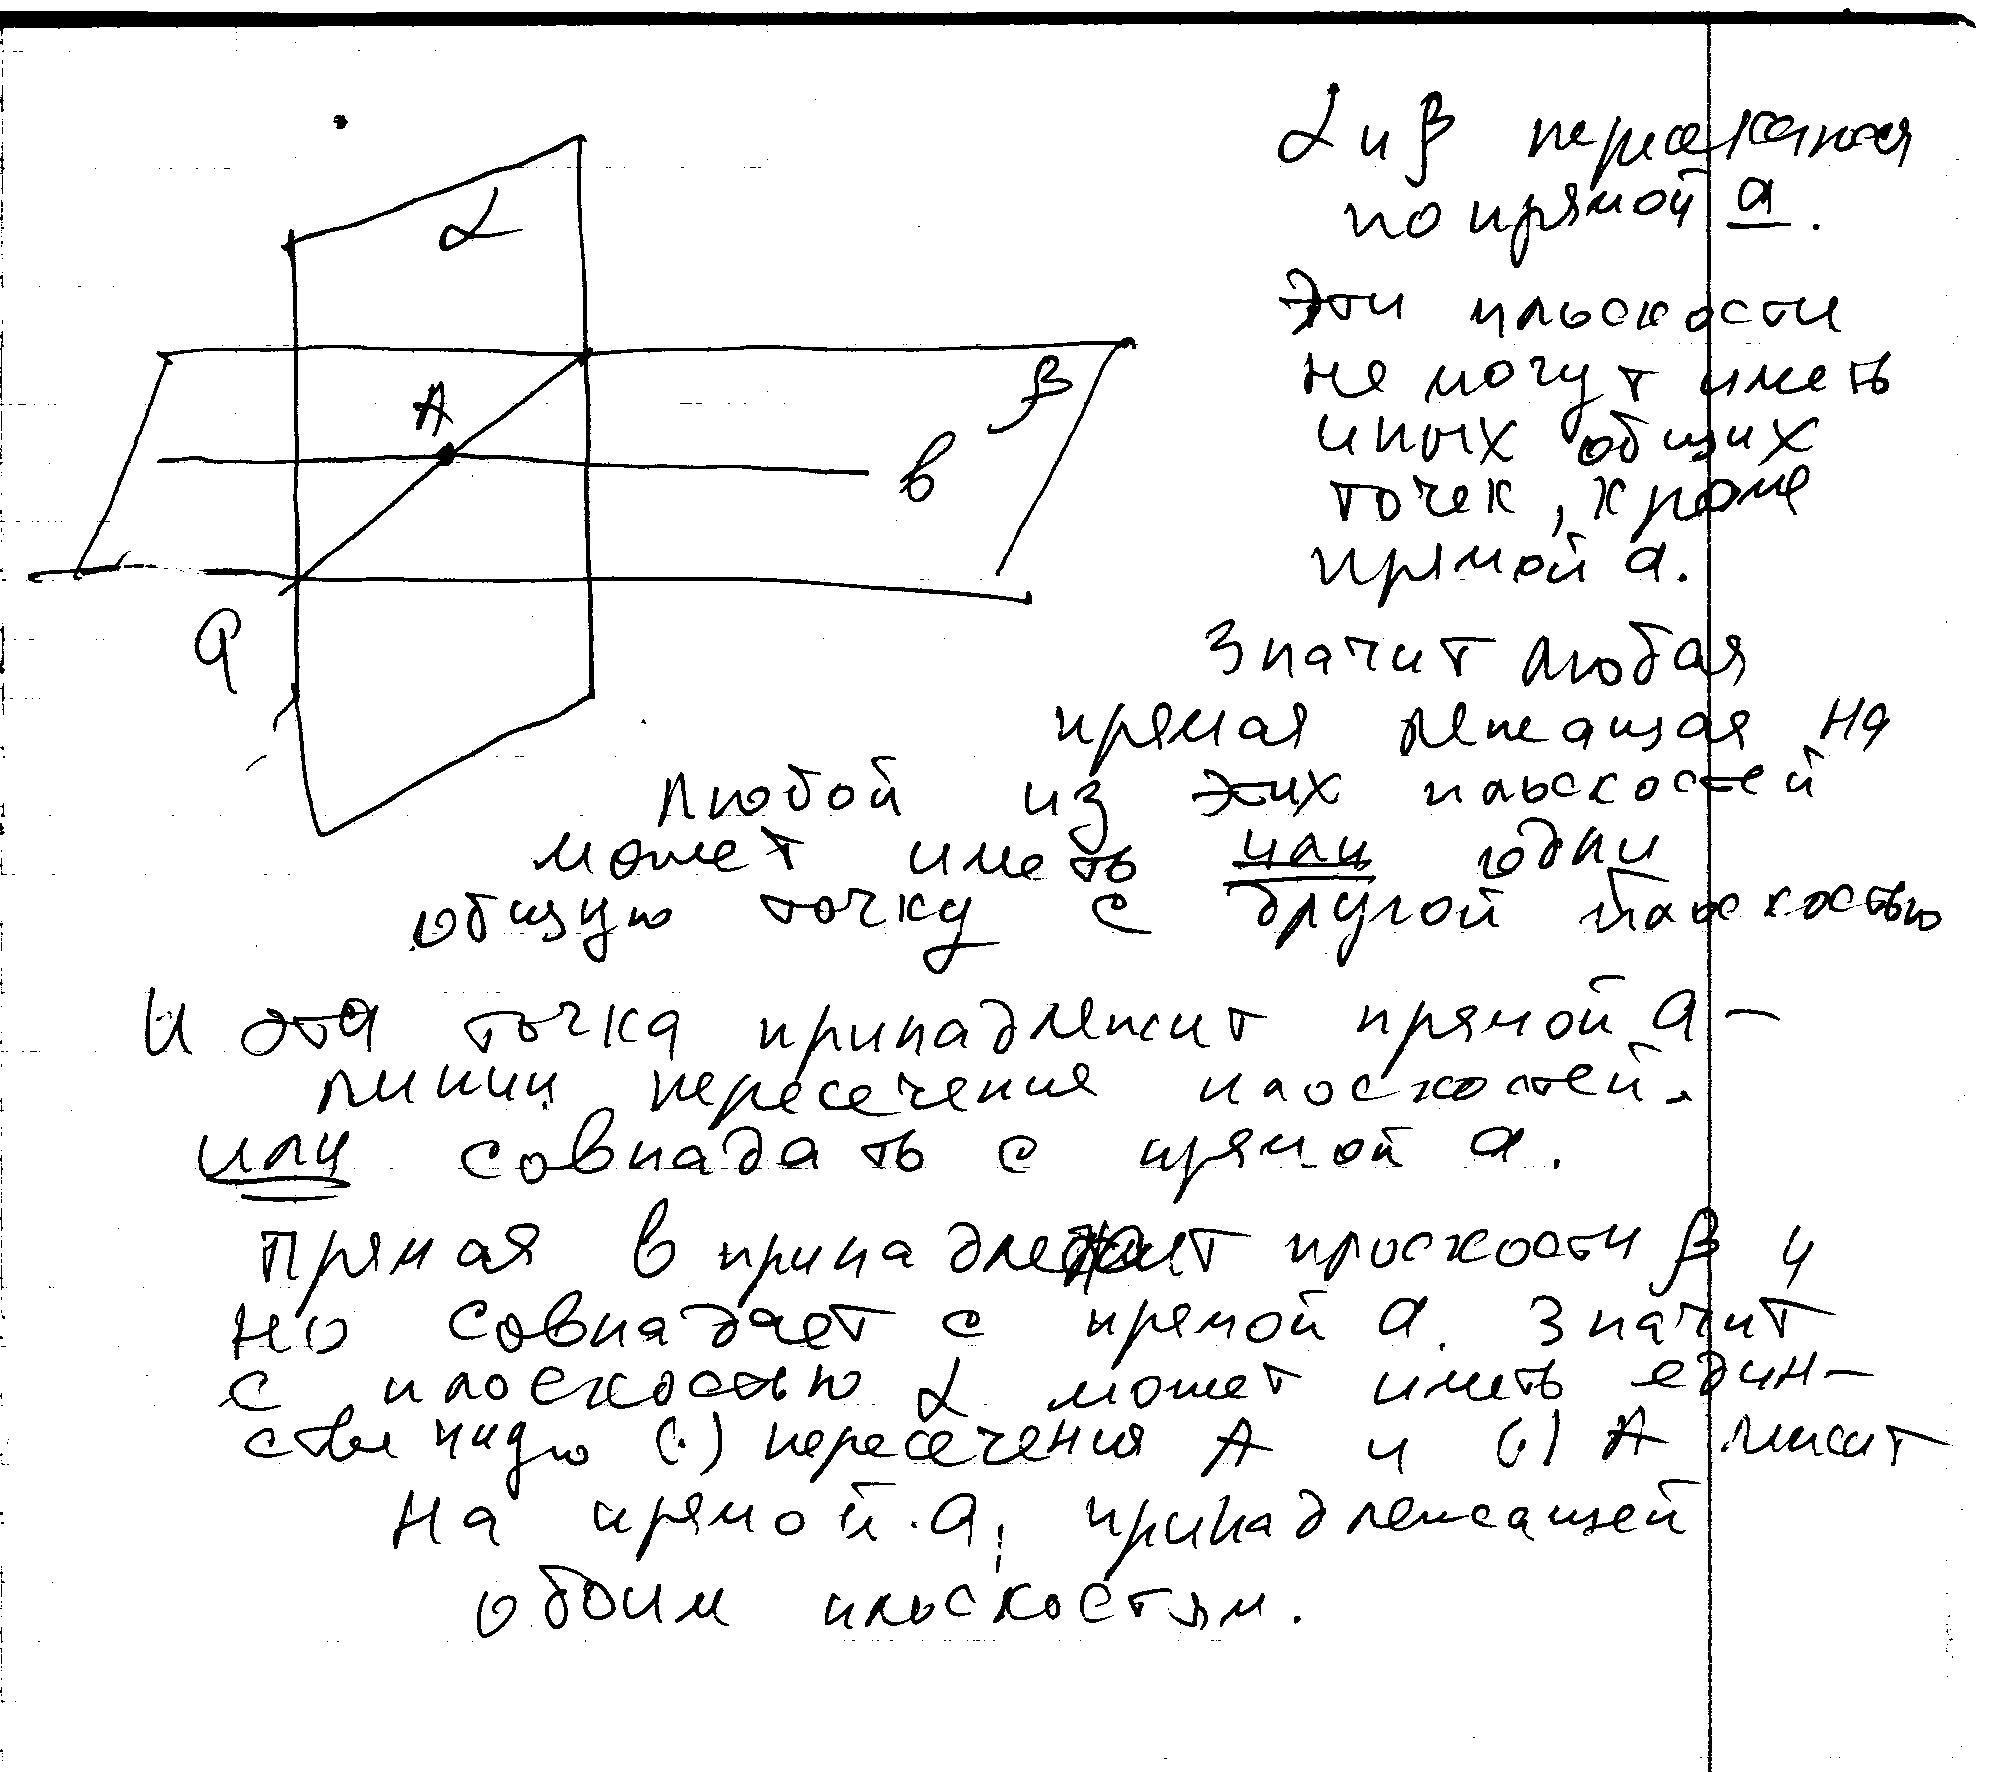 α и β пересекаются
по прямой а.
Эти плоскости
не могут иметь
иных общих
точек, кроме
прямой а.
Значит любая
прямая лежащая на
любой из этих плоскостей
может иметь или одну
общую точку с другой плоскостью
и эта точка принадлежит прямой а –
линии пересечения плоскостей.
или совпадать с прямой а.
Прямая в принадлежит плоскости β и
не совпадает с прямой а. Значит
с плоскостью α может иметь един-
ственную (·) пересечения А и (·) А лежит
на прямой а, принадлежащей
обоим плоскостям.
α
β
А
в
а